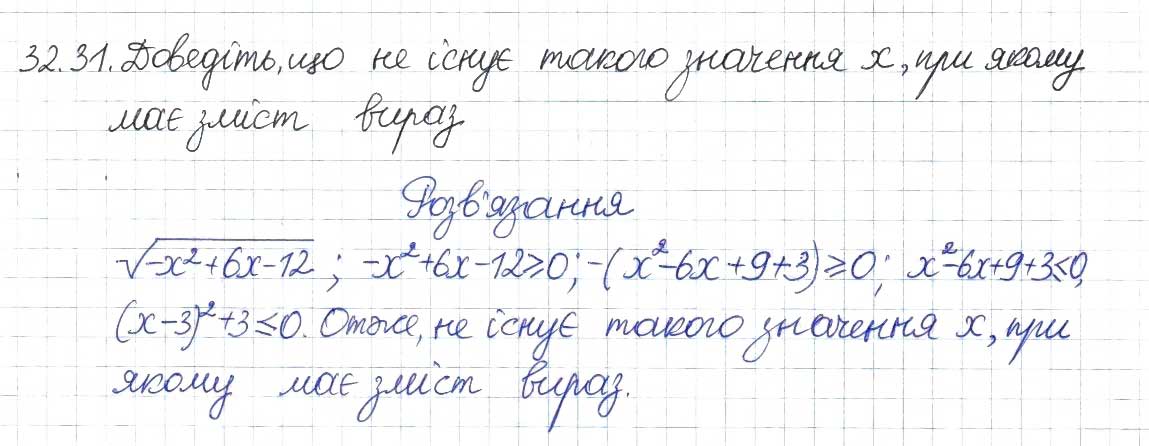 32.31. Доведіть, що не існує такого значення x, при якому
має зміст вираз
Розв'язання
√(-x²+6x-12); -x²+6x-12≥0; -(x²-6x+9+3)≥0; x²-6x+9+3≤0,
(x-3)²+3≤0. Отже, не існує такого значення x, при
якому має зміст вираз.